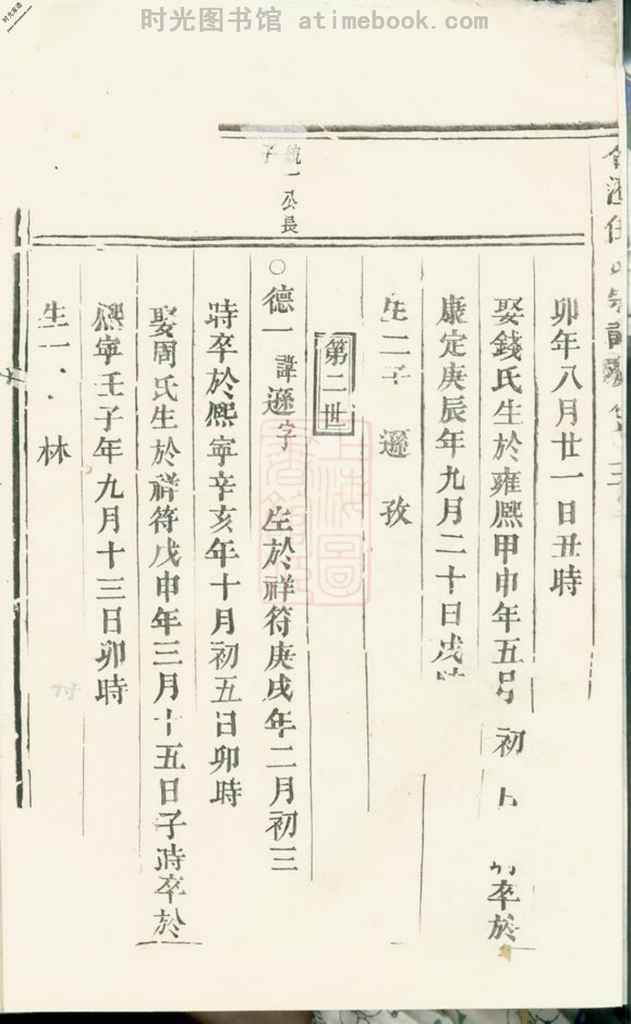 时光图书馆 atimebook.com
卯年八月廿一日丑時
娶錢氏生於雍熙甲申年五月初 卒於
康定庚辰年九月二十日戌時
生二子 遜 孜
第二世
統一公長子
○德一 諱遜字 生於祥符庚戌年二月初三
時卒於熙寧辛亥年十月初五日卯時
娶周氏生於祥符戊申年三月十五日子時卒於
熙寧壬子年九月十三日卯時
生一 林